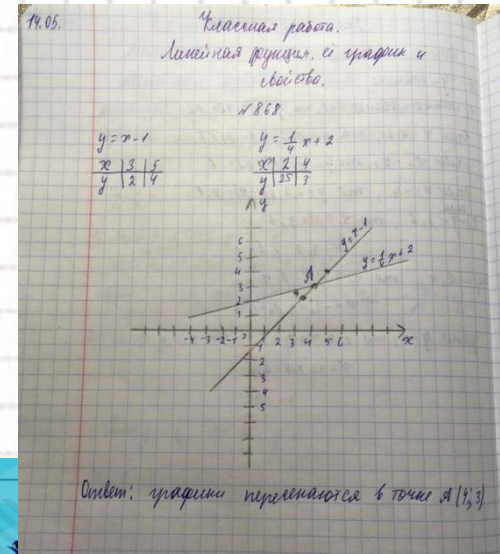 14.05.
Классная работа.
Линейная функция, её график и
свойства.
№868
y = x - 1
y = 1/4 x + 2
x 3 5
y 2 4
x 2 4
y 2,5 3
y
6
5
4
3
2
1
-4 -3 -2 -1 0 1 2 3 4 5 6
x
1
2
3
4
5
A
y=x-1
y=1/4 x+2
Ответ: графики пересекаются в точке A(4;3)